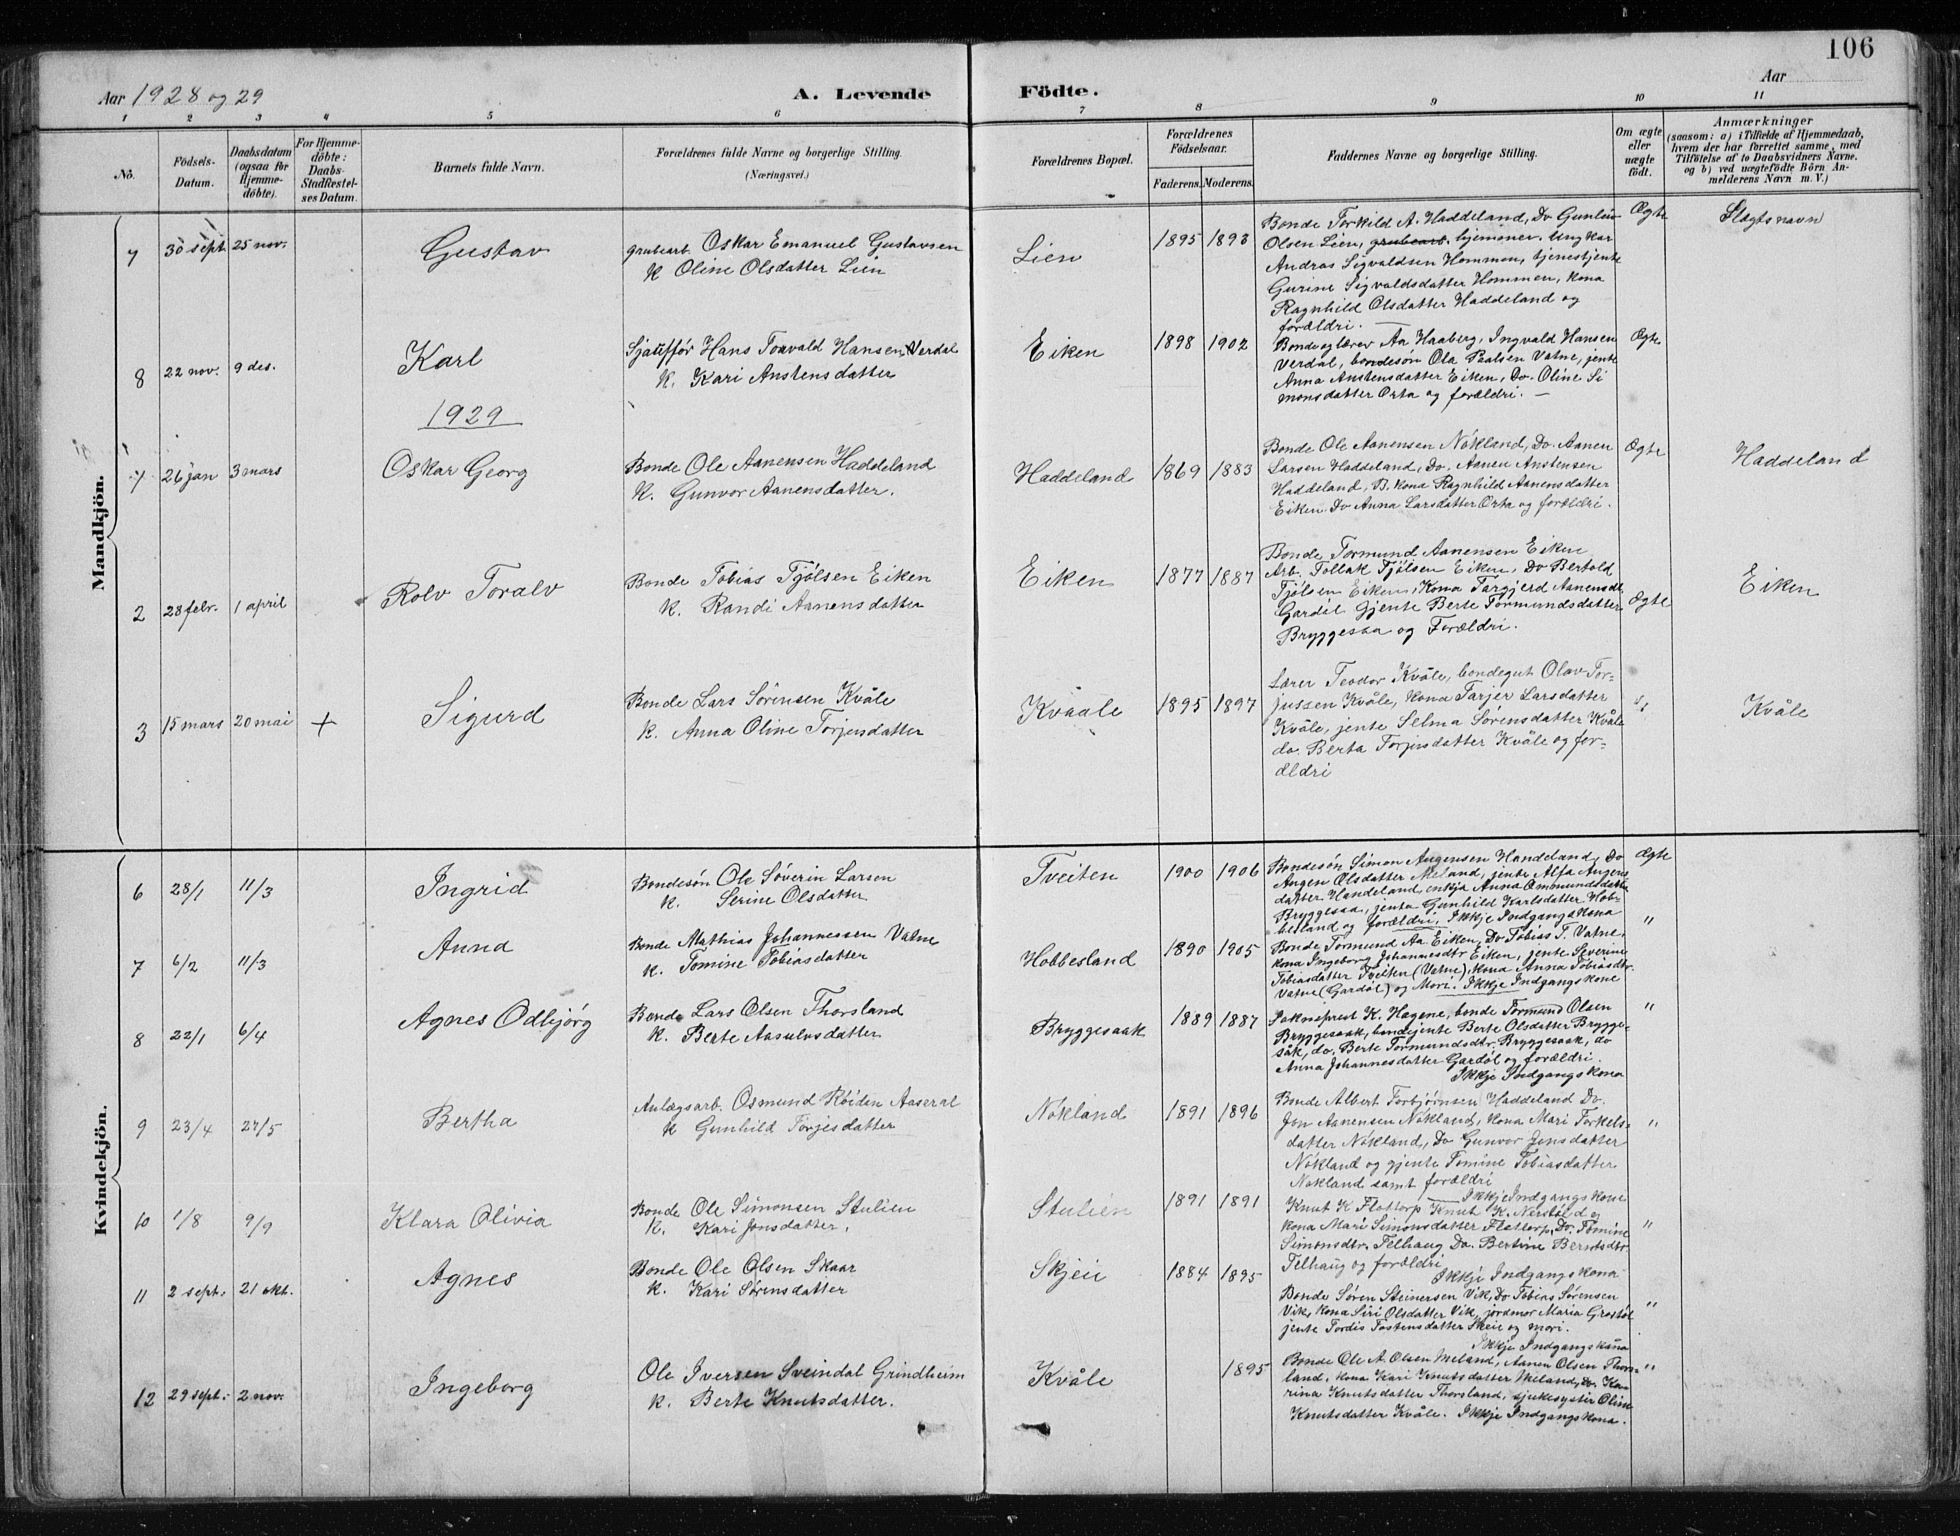 106
Aar 1928 og 29
A. Levende Födte.
Aar
1 2 3 4 5 6 7 8 9 10 11
No.
Födsels-Datum.
Daabsdatum (ogsaa for Hjemme-döbte).
For Hjemme-döbte: Daabs-Stadfæstel-ses Datum.
Barnets fulde Navn.
Forældrenes fulde Navne og borgerlige Stilling.
(Næringsvei.)
Forældrenes Bopæl.
Forældrenes Födselsaar.
Faderens. Moderens.
Faddernes Navne og borgerlige Stilling.
Om ægte eller uægte födt.
Anmærkninger
(saasom: a) i Tilfælde af Hjemmedaab,
hvem der har forrettet samme, med
Tilföielse af to Daabsvidners Navne.
og b) ved uægtefödte Börn An-
melderens Navn m. V.)
Mandkjön.
7 30 sept. 25 nov. Gustav
grubearb. Oskar Emanuel Gustavsen
k Oline Olsdatter Lien
Lien 1895 1893
Bonde Torkild A. Haddeland, Do Gunleiv
Olsen Lien, grubearb. hjemmer. Ungkar
Andras Sigvaldsen Hommen, tjenestjente
Gurine Sigvaldsdatter Hommen, kona
Ragnhild Olsdatter Haddeland og
forældri.
Ægte Slægtsnavn
8 22 nov. 9 des. Karl
Sjauffør Hans Torvald Hansen Verdal
k. Kari Anstensdatter
Eiken 1898 1902
Bonde og lærer Aa Haaberg, Ingvald Hansen
Verdal, bondesøn Ola Paalsen Vatne, jente
Anna Anstensdatter Eiken, Do. Oline Si
monsdatter Orta og forældri.
Ægte
1929
1 26 jan 3 mars Oskar Georg
Bonde Ole Aanensen Haddeland
k. Gunvor Aanensdatter.
Haddeland 1869 1883
Bonde Ole Aanensen Nökland, Do. Aanen
Larsen Haddeland, Do. Aanen Anstensen
Haddeland, B. kona Ragnhild Aanensdatter
Eiken. Do Anna Larsdatter Orta og forældri.
Ægte Haddeland
2 28 febr. 1 april Rolv Toralv
Bonde Tobias Tjölsen Eiken
k. Randi Aanensdatter
Eiken 1877 1887
Bonde Tormund Aanensen Eiken
Arb. Tollak Tjölsen Eiken, Do Bertold
Tjölsen Eiken, Kona Targjerd Aanensdt.
Gardöl Gjente Berte Tormundsdatter
Bryggessa og Forældri.
Ægte Eiken
3 15 mars 20 mai + Sigurd
Bonde Lars Sörensen Kvåle
k. Anna Oline Torjusdatter
Kvaale 1895 1897
Lærer Teodor Kvåle, bondegut Olav Tor-
jussen Kvåle, kona Tarjer Larsdatter
Kvåle, jente Selma Sörensdatter Kvåle
do. Berta Torjusdatter Kvåle og for-
ældri
Kvåle
Kvindekjön.
6 28/1 11/3 Ingrid
Bondesön Ole Söverin Larsen
k. Serine Olsdatter
Tveiten 1900 1906
Bondesön Simon Augensen Handeland, Do
Augen Olsdatter Meland, jente Alfa Augens
datter Handeland, enkja Anna Omundsdatter
Bryggesaa, jenta Gunhild Karlsdatter Hob-
besland og forældri. Ikkje Indgangskona
Ægte
7 6/2 11/3 Anna
Bonde Mathias Johannessen Vatne
k. Tomine Tobiasdatter
Hobbesland 1890 1905
Bonde Tormund Aa. Eiken, Do Tobias T. Vatne,
kona Ingeborg Johannesdtr Eiken, jente Severine
Tobiasdatter Tveiten (Vatne), kona Anna Tobiasdtr.
Vatne (Gardöl) og Mori. Ikkje Indgangskone
"
8 22/1 6/4 Agnes Odbjörg
Bonde Lars Olsen Thorsland
k. Berte Aasulvsdatter
Bryggesaak 1889 1887
Sokneprest K. Hagene, bonde Tormund Olsen
Bryggesaak, bondejente Berte Olsdatter Brygge-
såk, do. Berte Tormundsdtr. Bryggesaak, do
Anna Johannesdatter Gardöl og forældri.
Ikkje Indgangskona
"
9 23/4 27/5 Bertha
Anlægsarb. Osmund Röiden Aaseral
k Gunhild Torjesdatter
Nökland 1891 1896
Bonde Albert Torbjörnsen Haddeland Do.
Jon Aanensen Nökland, kona Mari Torkels-
datter Nökland, Do Gunvor Jonsdatter
Nökland og gjente Tomine Tobiasdatter
Nökland samt forældri
Ikkje Indgangskone
"
10 1/8 9/9 Klara Olivia
Bonde Ole Simonsen Stulien
k. Kari Jonsdatter.
Stulien 1891 1891
Knut K Flottorp Knut K. Nerstöl og
kona Mari Simonsdatter Flottorp, Do. Tomine
Simonsdtr. Felhaug Do. Bertine Berntsdtr.
Felhaug og forældri
Ikkje Indgangskona
"
11 2 sept. 21 okt. Agnes
Bonde Ole Olsen Skaar
k. Kari Sörensdatter
Skjeie 1884 1895
Bonde Sören Steinersen Vik, Do Tobias Sörensen
Vik, kona Siri Olsdatter Vik, jordmor Maria Grostöl
jente Tordis Tostensdatter Skeie og mori.
Ikkje Indgangskåna
"
12 29 sept. 2 nov. Ingeborg
Ole Iversen Sveindal Grindheim
k. Berte Knutsdatter.
Kvåle 1895
Bonde Ole A. Olsen Meland, Aanen Olsen Thors-
land, kona Kari Knutsdatter Meland, do. Ka-
rina Knutsdatter Thorsland, sjukesyster Oline
Knutsdatter Kvåle. Ikkje Indgangskona.
"